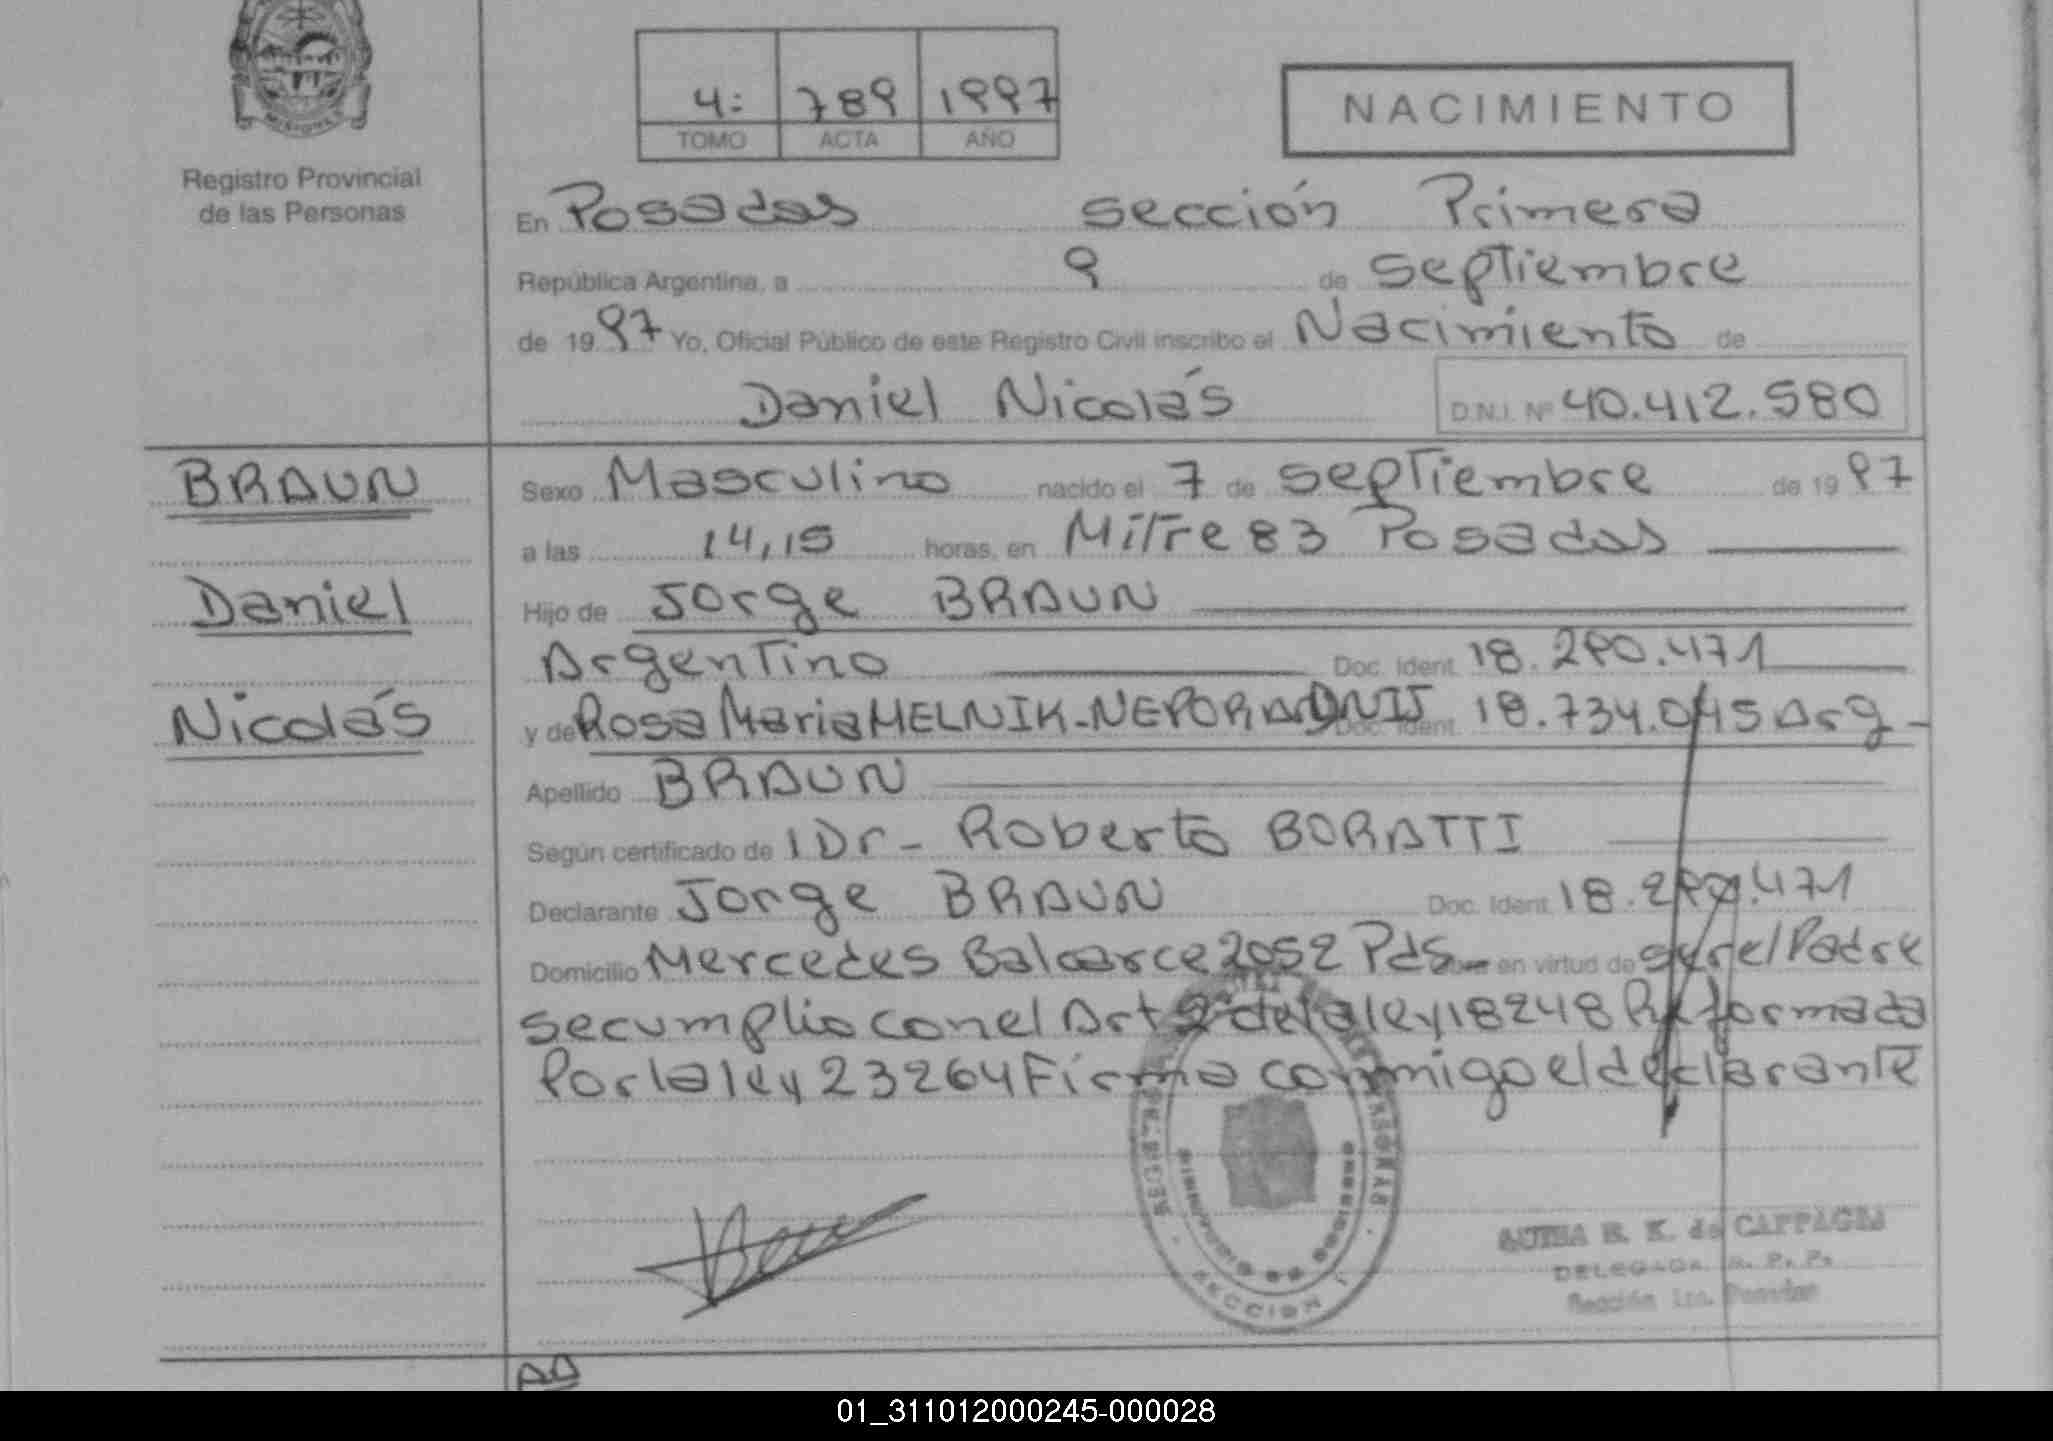 MISIONES
4: 789 1997
TOMO ACTA AÑO
NACIMIENTO
Registro Provincial
de las Personas
En Posadas sección Primera
República Argentina, a 9 de septiembre
de 1997 Yo, Oficial Público de este Registro Civil inscribo el Nacimiento de
Daniel Nicolás D.N.I. Nº 40.412.580
BRAUN
Daniel
Nicolás
Sexo Masculino nacido el 7 de septiembre de 1997
a las 14,15 horas, en Mitre 83 Posadas
Hijo de Jorge BRAUN
Argentino Doc. Ident. 18.290.471
y de Rosa Maria MELNIK-NEPORA DNIS Doc. Ident. 18.734.045 Arg-
Apellido BRAUN
Según certificado de 1 Dr- Roberto BORATTI
Declarante Jorge BRAUN Doc. Ident. 18.290.471
Domicilio Mercedes Balcarce 2052 Pds en virtud de ser el Padre
se cumplio con el Art 2º de la ley 18248 Reformada
Por la ley 23264 Firma conmigo el declarante
SECCION 1
R. K. de CAPPAGLI
DELEGADA R. P. P.
Sección 1ra. Posadas
01_311012000245-000028